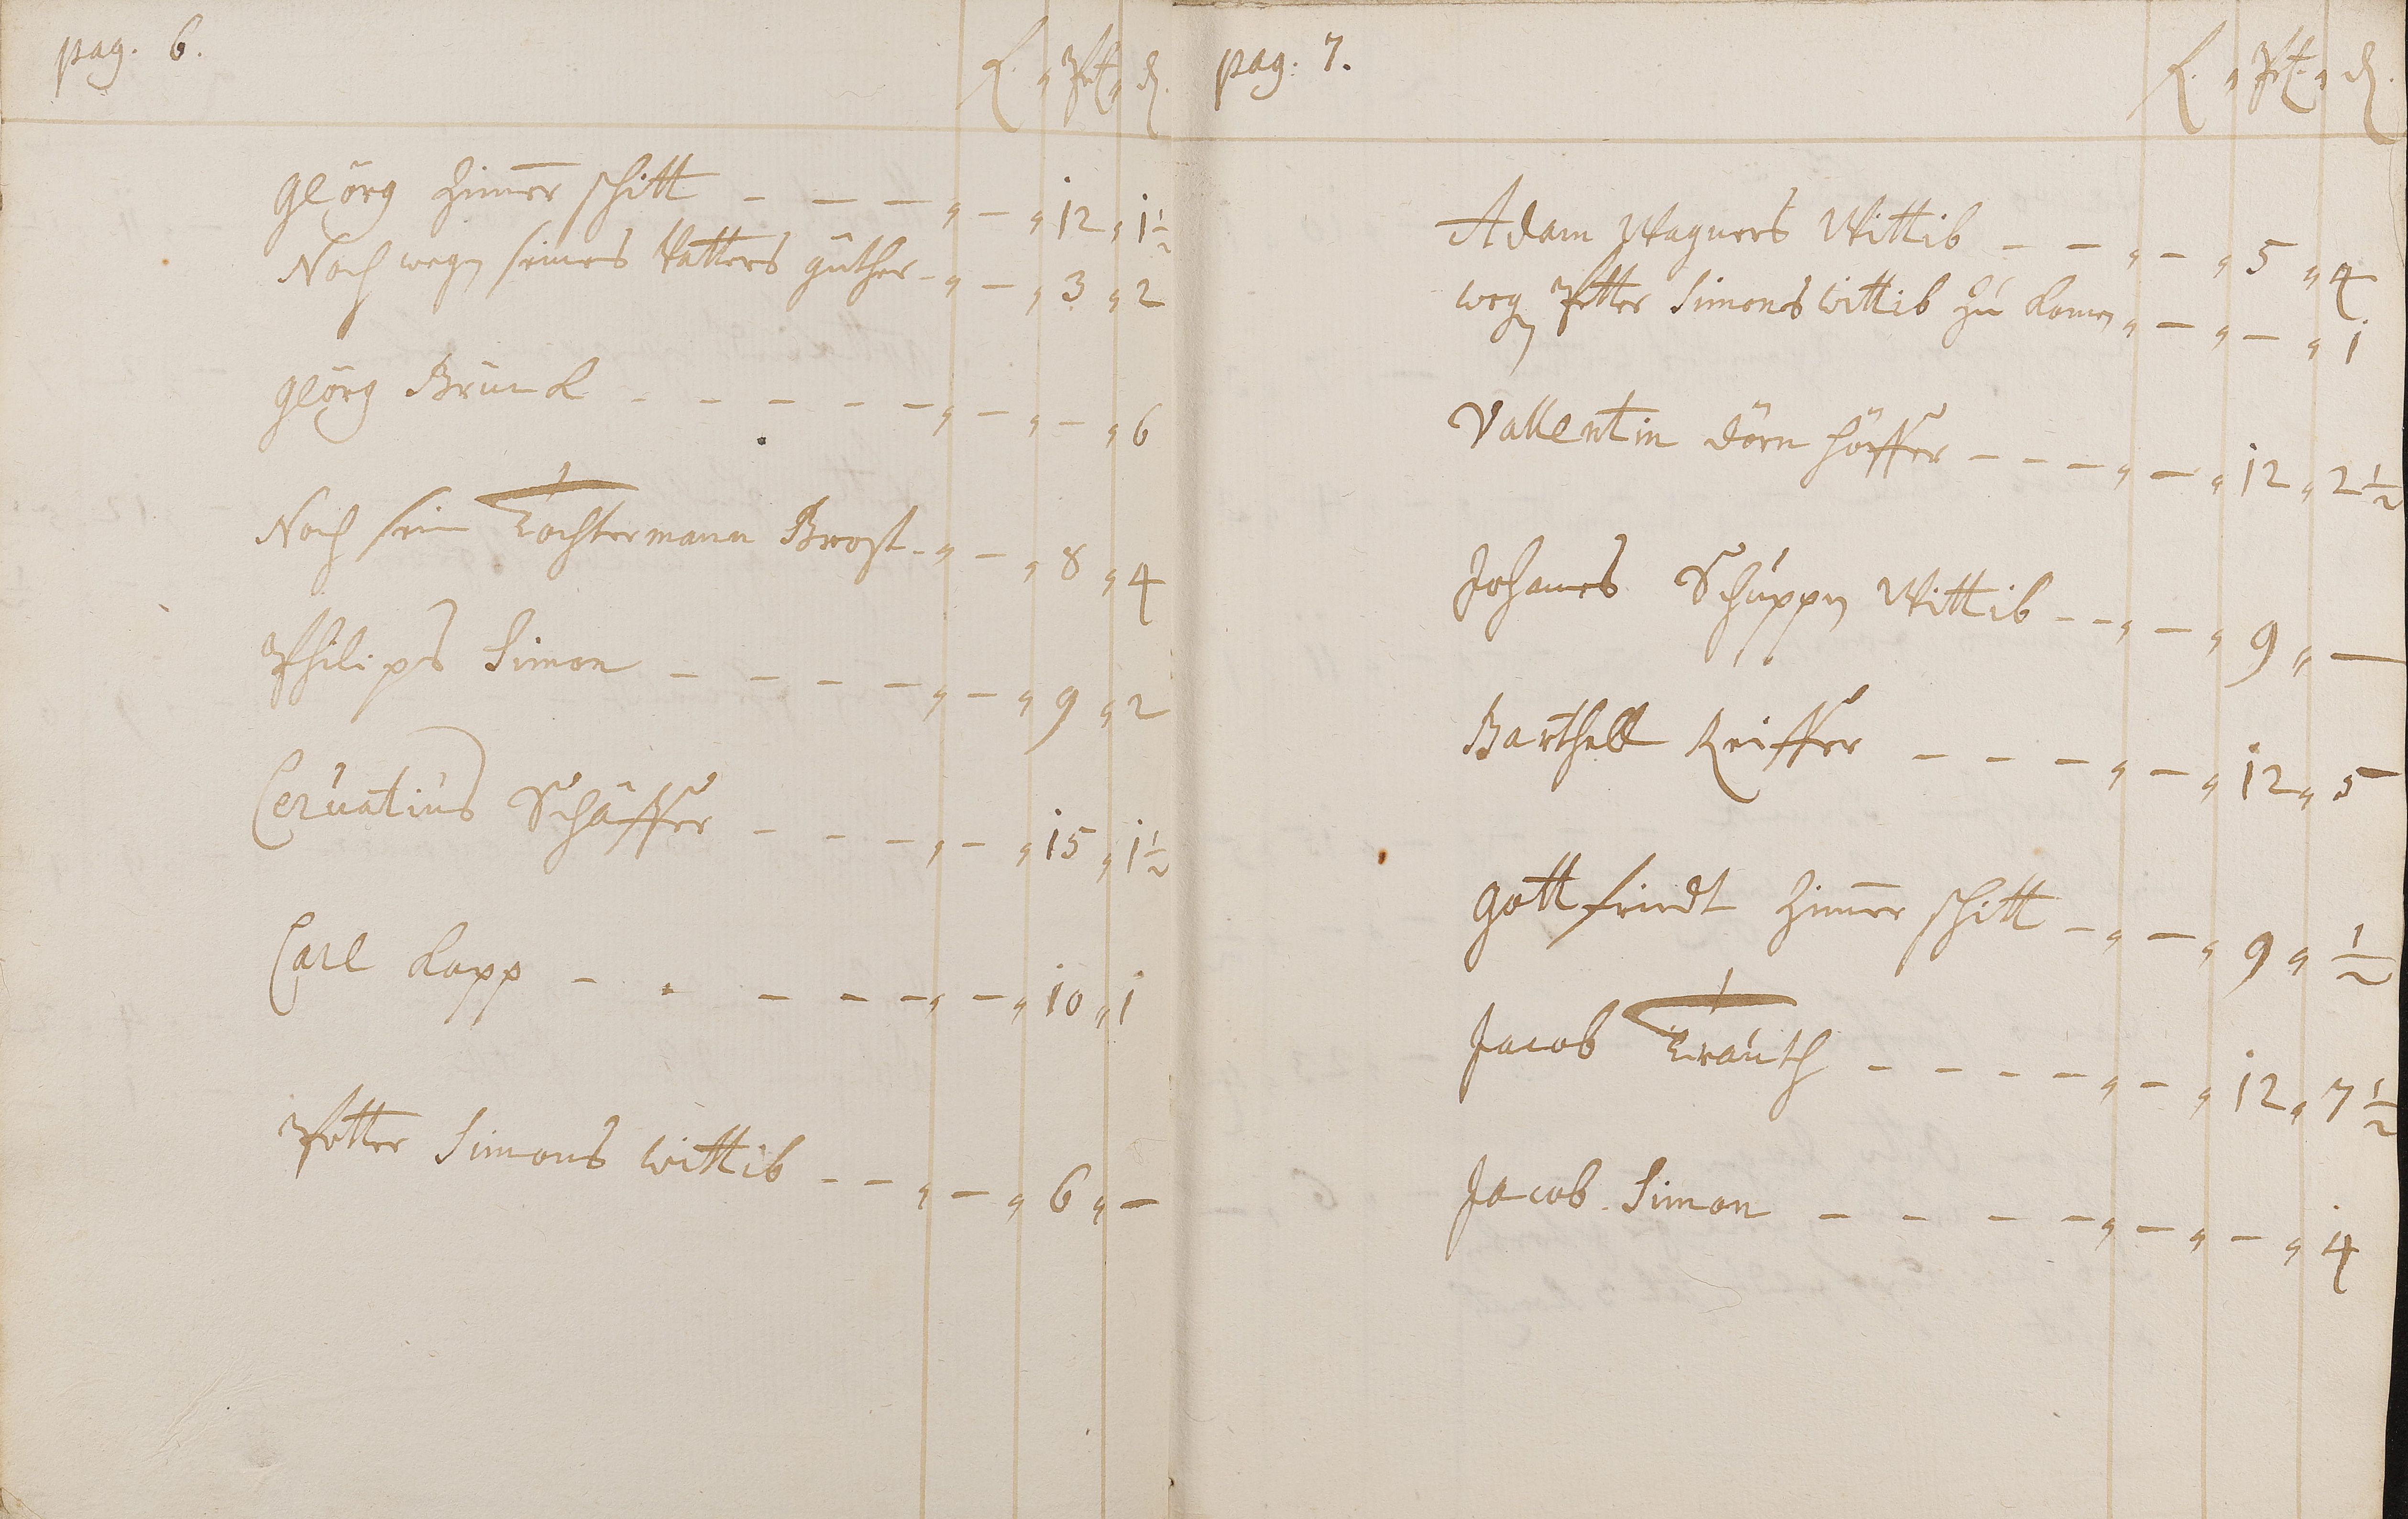 pag. 6.
Geörg Zimer schitt - - - " - " 12 " 1½
Noch wegen seines Vatters güther - " - " 3 " 2
Geörg Brunck - - - - - " - " - " 6
Noch sein Tochtermann Brost - " - " 8 " 4
Philips Simon - - - - " - " 9 " 2
Cervatius Schäffer - - - " - " 15 " 1½
Carl Lapp - - - - - " - " 10 " 1
Petter Simons wittib - - " - " 6 " -
pag: 7.
Adam Wagners Wittib - - " - " 5 " 4
wegen Petter Simons wittib zu " - " - " 1
Vallentin Dörn höffer - - - " - " 12 " 2½
Johannes Schuppen Wittib - - " - " 9 " -
Barthell Reiffer - - - " - " 12 " 5
Gottfriedt Zimer schitt - " - " 9 " ½
Jacob Trauth - - - - " - " 12 " 7½
Jacob Simon - - - - " - " - " 4